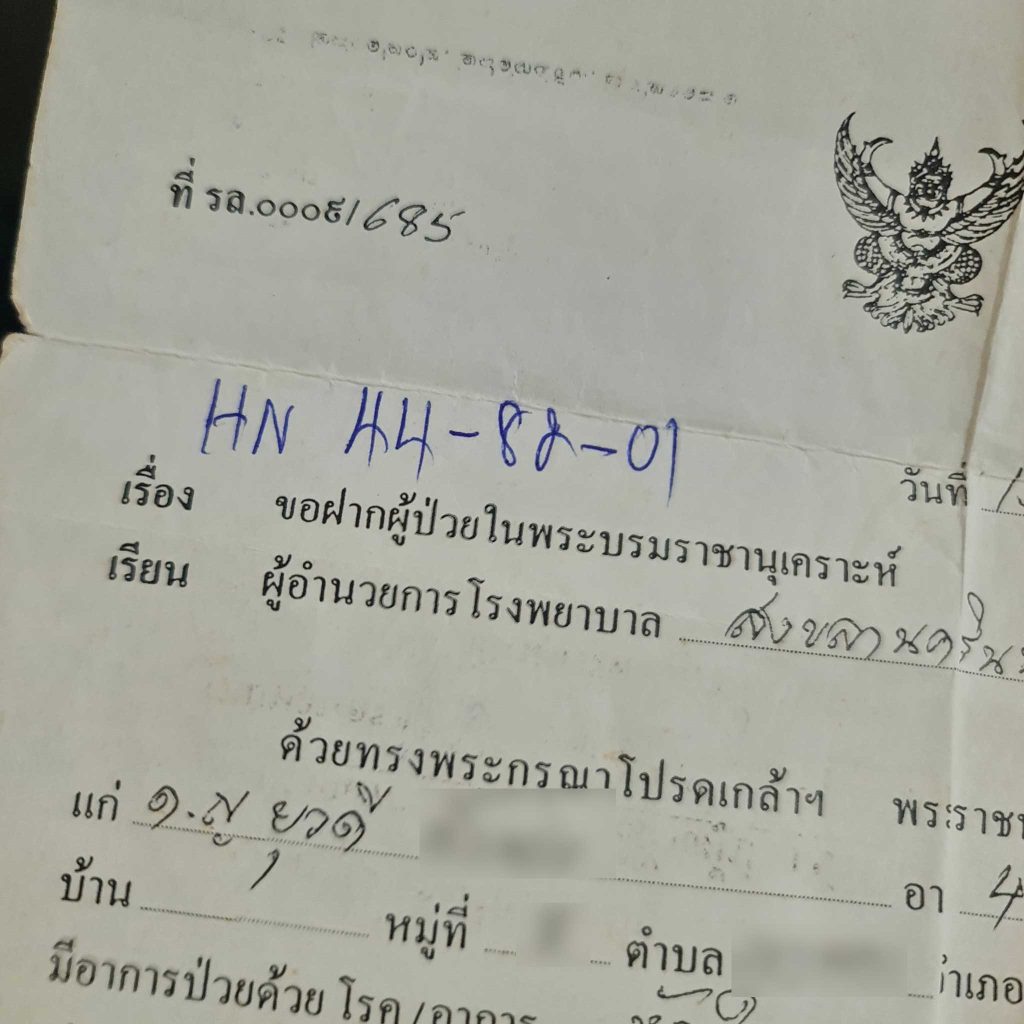 ที่ รล.๐๐๐๙/685
HN 44-82-01
วันที่
เรื่อง ขอฝากผู้ป่วยในพระบรมราชานุเคราะห์
เรียน ผู้อำนวยการโรงพยาบาล สงขลานครินท
ด้วยทรงพระกรุณาโปรดเกล้าฯ พระราช
แก่ ด.ญ ยุวดี อา 4
บ้าน หมู่ที่ ตำบล ำเภอ
มีอาการป่วยด้วย โรค/อาการ